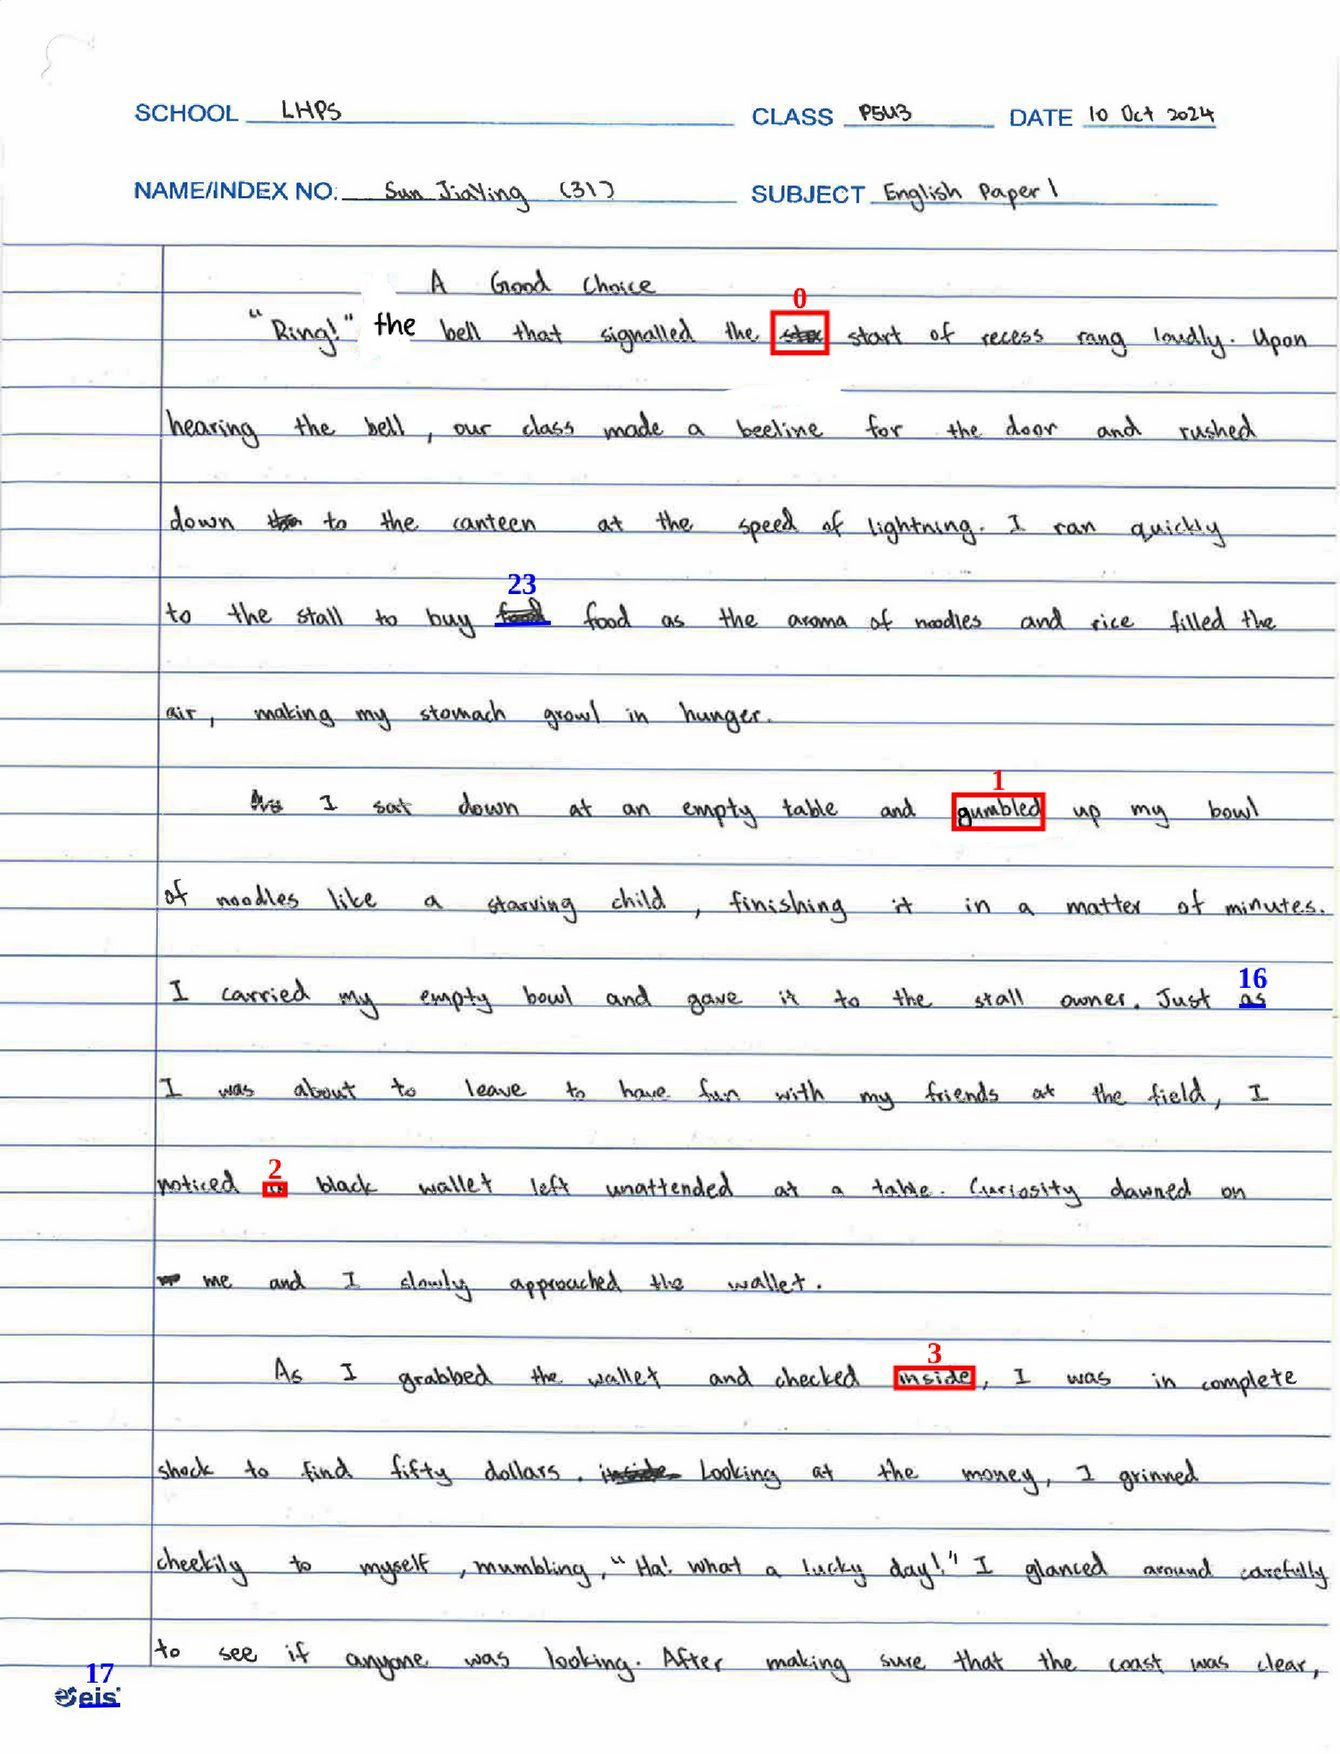 SCHOOL LHPS CLASS P5U3 DATE 10 Oct 2024
NAME/INDEX NO. Sun JiaYing (31) SUBJECT English Paper 1
A Good Choice
0
"Ring!" the bell that signalled the start of recess rang loudly. Upon
hearing the bell, our class made a beeline for the door and rushed
down to the canteen at the speed of lightning. I ran quickly
23
to the stall to buy food food as the aroma of noodles and rice filled the
air, making my stomach growl in hunger.
1
As I sat down at an empty table and gumbled up my bowl
of noodles like a starving child, finishing it in a matter of minutes.
16
I carried my empty bowl and gave it to the stall owner. Just as
I was about to leave to have fun with my friends at the field, I
2
noticed a black wallet left unattended at a table. Curiosity dawned on
me and I slowly approached the wallet.
3
As I grabbed the wallet and checked inside, I was in complete
shock to find fifty dollars. inside Looking at the money, I grinned
cheekily to myself, mumbling, "Ha! What a lucky day!" I glanced around carefully
to see if anyone was looking. After making sure that the coast was clear,
17
eis